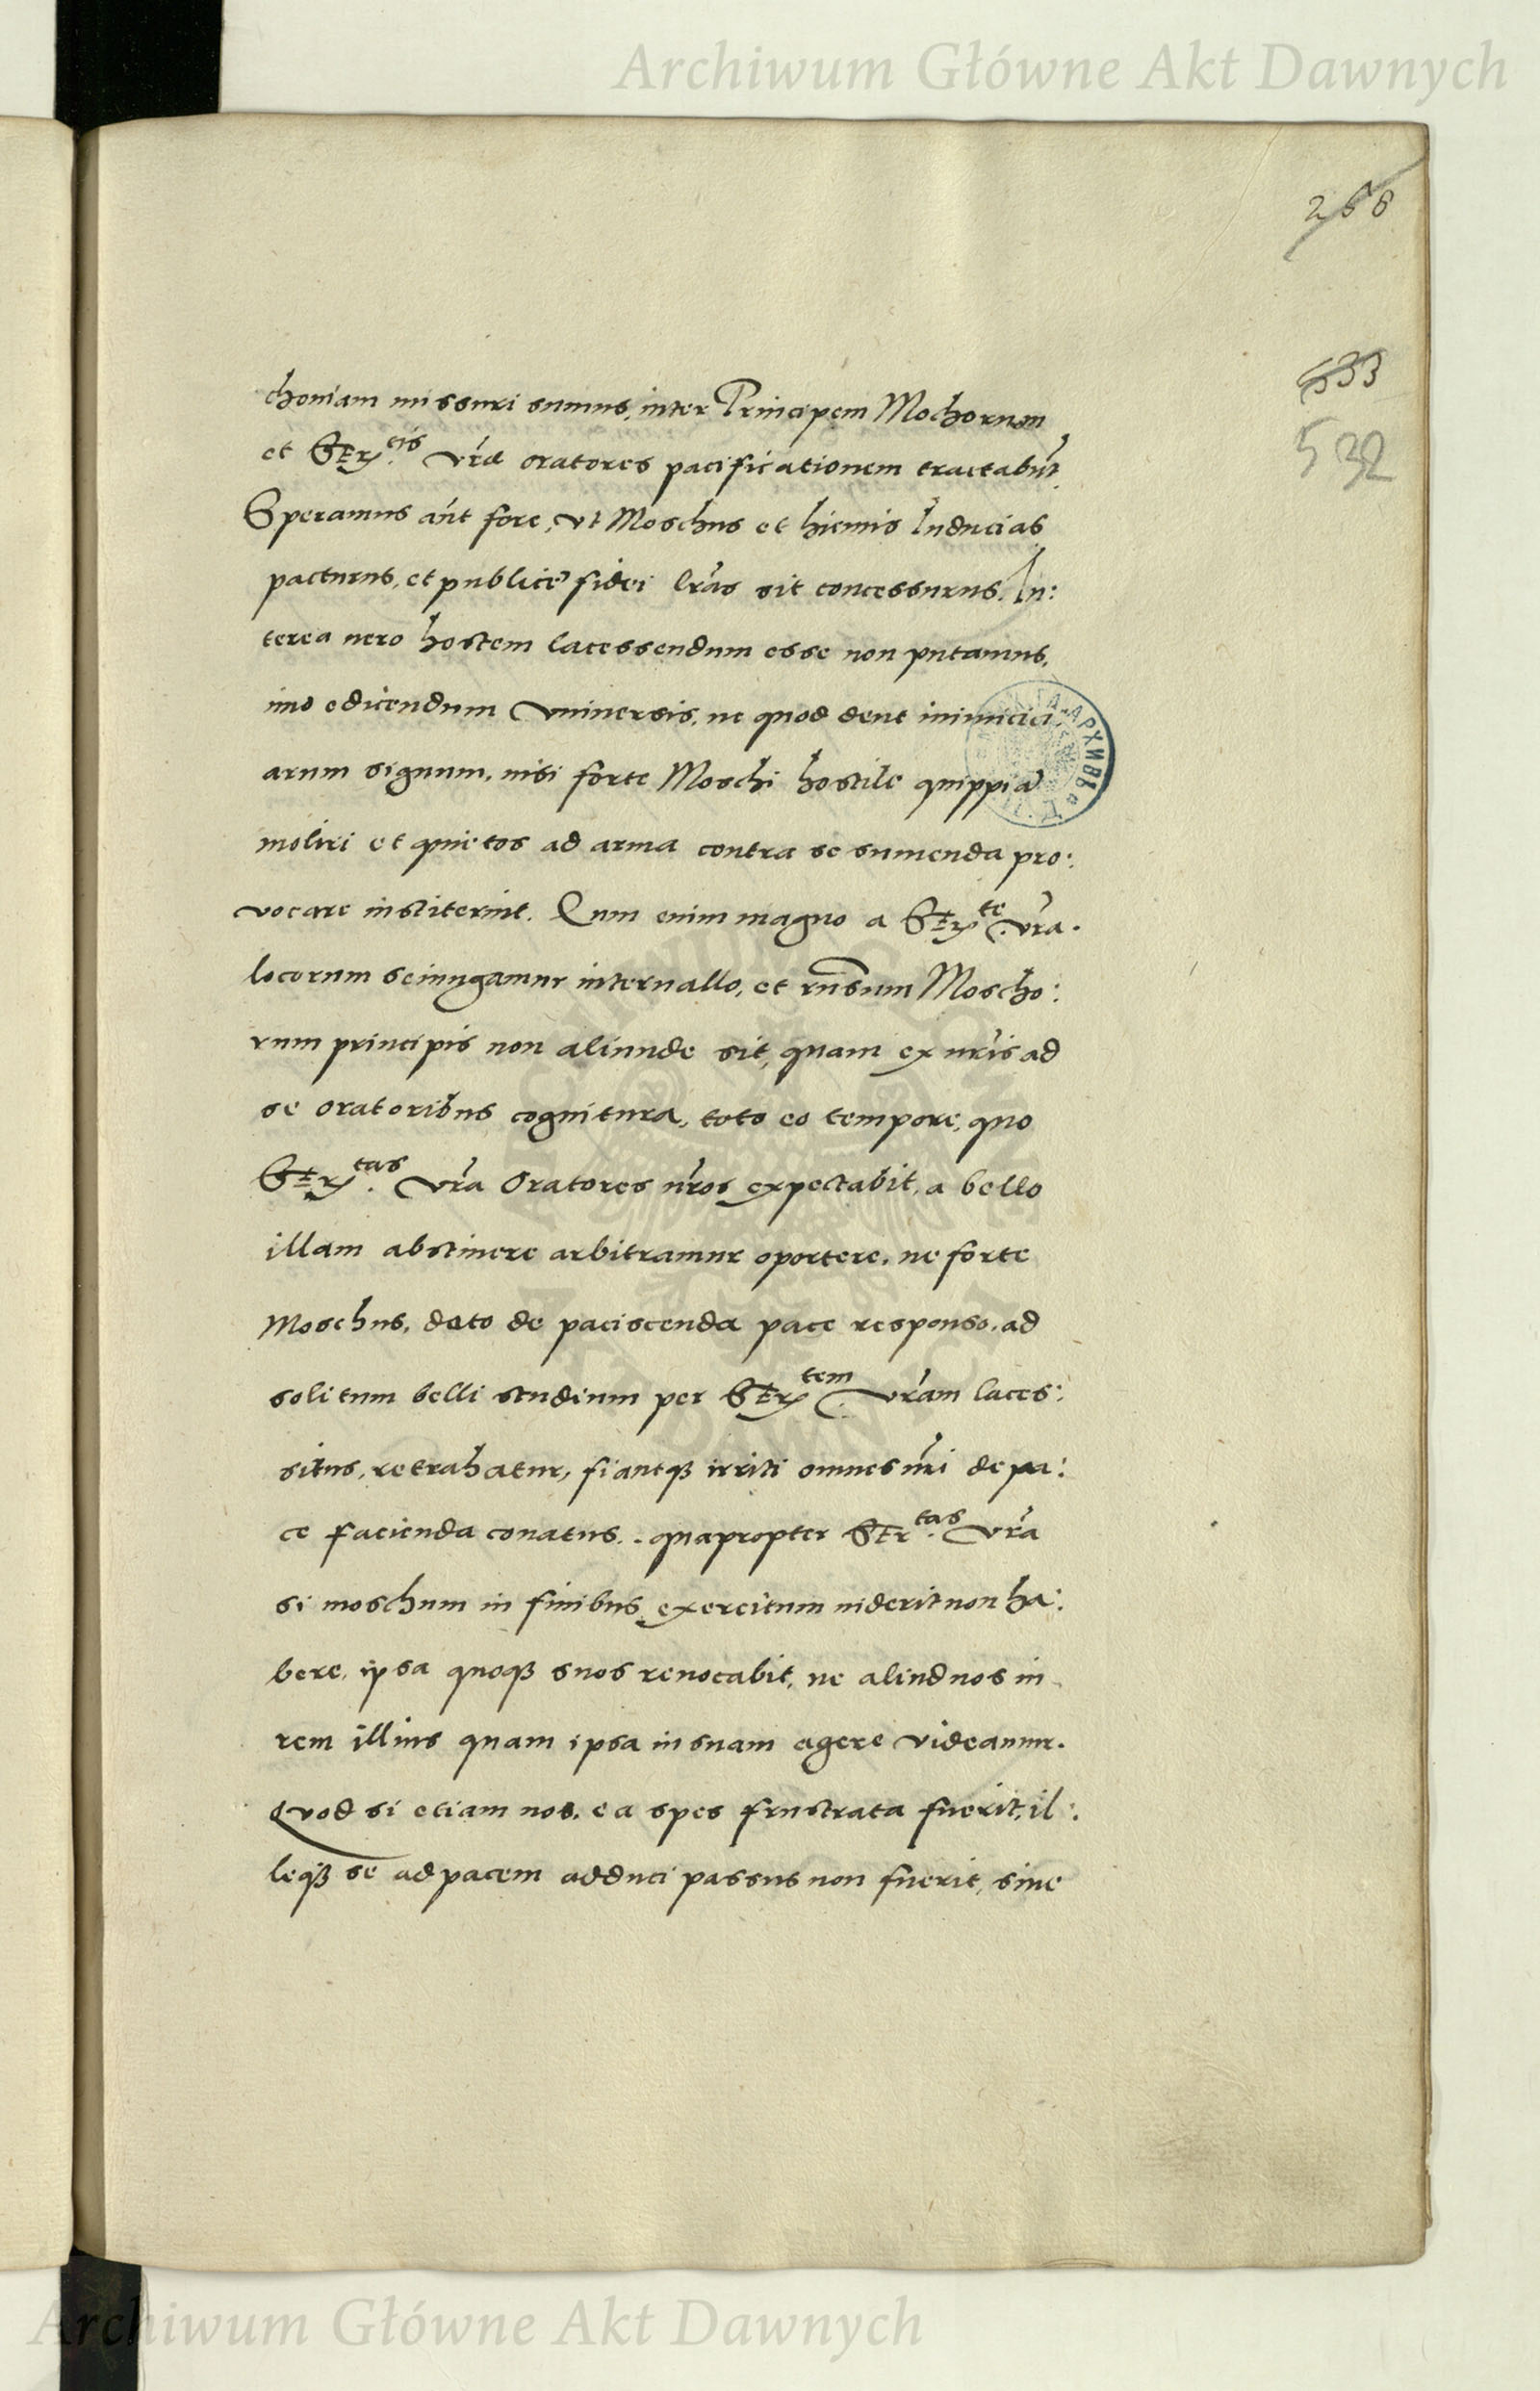 Archiwum Główne Akt Dawnych
268
533
532
choniam missuri sumus, inter Principem Mochorum
et Ser.tis vr̃æ oratores pacificationem tractabũt.
Speramus aũt fore, vt Moschus et hiemis Inducias
pacturus, et publicę fidei lr̃as sit concessurus. In:
terea uero hostem lacessendum esse non putamus,
imo edicendum vniuersis, ne quod dent inimici:
arum signum, nisi forte Moschi hostile quippiã
moliri et quietos ad arma contra se sumenda pro:
vocare institerint. Qum enim magno a Ser.te vr̃a.
locorum seiungamur interuallo, et rñsum Moscho:
rum principis non aliunde sit, quam ex nr̃is ad
se oratoribus cognitura, toto eo tempore, quo
Ser.tas vr̃a Oratores nr̃os expectabit, a bello
illam abstinere arbitramur oportere, ne forte
Moschus, dato de paciscenda pace responso, ad
solitum belli studium per Ser.tem vr̃am laces:
situs, retrahatur, fiantqꝫ irriti omnes nr̃i de pa:
ce facienda conatus. quapropter Ser.tas vr̃a
si moschum in finibus exercitum uiderit non ha:
bere, ipsa quoqꝫ suos reuocabit, ne aliud nos in
rem illius quam ipsa in suam agere videamur.
Quod si etiam nos, ea spes frustrata fuerit, il:
leqꝫ se ad pacem adduci passus non fuerit, siue
Archiwum Główne Akt Dawnych